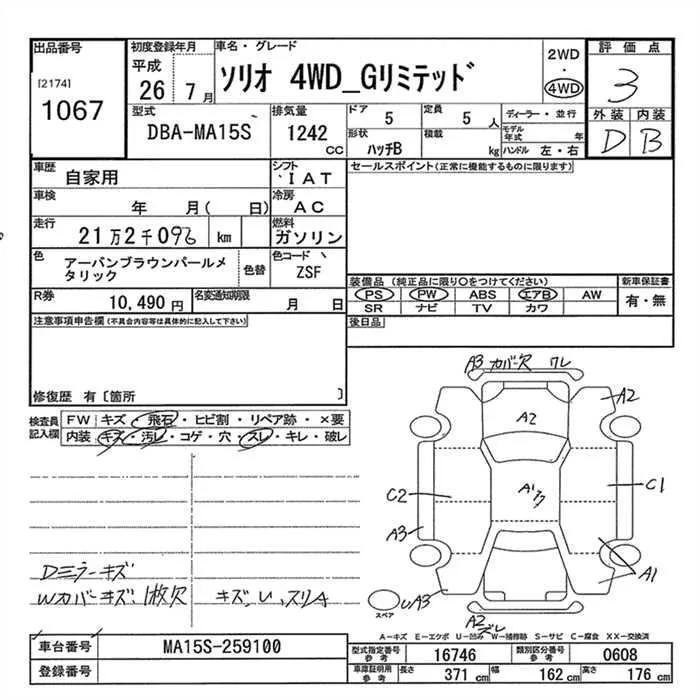 出品番号
[2174]
1067
初度登録年月
平成
26 7月
車名・グレード
ソリオ 4WD_Gリミテッド
2WD
・
4WD
評価点
3
外装 内装
D B
型式
DBA-MA15S
排気量
1242
cc
ドア
5
定員
5 人
形状
ハッチB
積載
kg
ディーラー・並行
モデル年式 年
ハンドル 左・右
車歴
自家用
シフト
IAT
車検
年 月( 日)
冷房
AC
走行
21万2千096 km
燃料
ガソリン
色
アーバンブラウンパールメ
タリック
色替
色コード
ZSF
R券
10,490 円
名変通知期限
月 日
セールスポイント(正常に機能するものに限ります)
装備品 (純正品に限り○をつけてください)
PS PW ABS エアB AW
SR ナビ TV カワ
新車保証書
有・無
後日品
注意事項申告欄(不具合内容等は具体的に記入して下さい)
修復歴 有〔箇所 〕
検査員
記入欄
FW キズ・飛石・ヒビ割・リペア跡・×要
内装 キズ・汚レ・コゲ・穴・スレ・キレ・破レ
Dミラーキズ
Wカバーキズ、1枚欠 キズ、U、スリA
A3 カバー欠 ワレ
A2
A2
C2
A1 ワ
C1
A3
A1
UA3
スペア
A2
ズレ
A-キズ E-エクボ U-凹み W-補修跡 S-サビ C-腐食 XX-交換済
車台番号
MA15S-259100
登録番号
型式指定番号
参考
16746
類別区分番号
参考
0608
車庫証明用
参考
長さ 371 cm 幅 162 cm 高さ 176 cm